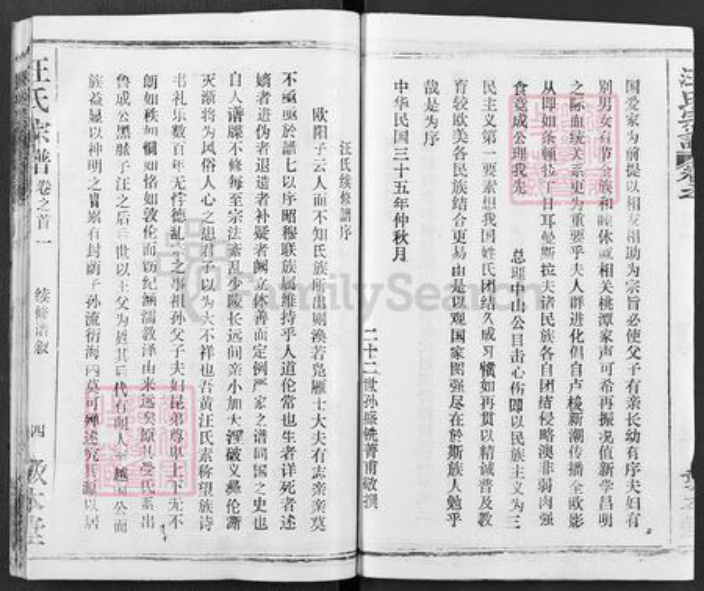 国爱家为前提以相友相助为宗旨必使父子有亲长幼有序夫妇有
别男女有节合族和睦休戚相关桃潭家声可希再振况值新学昌明
之际血统关系更为重要乎夫人群进化倡自卢梭新潮传播全欧影
从即如条顿拉丁日耳曼斯拉夫诸民族各自团结侵略澳非弱肉强
食竟成公理我先 总理中山公目击心伤即以民族主义为三
民主义第一要素想我国姓氏团结久成习惯如再贯以精诚普及教
育较欧美各民族结合更易由是以观国家图强尽在於斯族人勉乎
哉是为序
中华民国三十五年仲秋月
二十二世孙盛铣菁甫敬撰
汪氏续修谱序
欧阳子云人而不知氏族所出则涣若凫雁士大夫有志亲亲莫
不亟亟於谱七以序昭穆联族属维持乎人道伦常也生者详死者述
嫡者进伪者退遗者补疑者阙立休善而定例严家之谱同国之史也
自人谱牒不修每至宗法紊乱少陵长远间亲小加大淫破义彝伦渐
灭濒将为风俗人心之患君子以为大不祥也吾黄汪氏素称望族诗
书礼乐数百年无悖德乱常之事祖孙父子夫妇昆弟尊卑上下无不
朗如秩如恂如恪如敦伦而饬纪涵濡教泽由来远矣原其受氏系出
鲁成公黑肱子汪之后三世以王父为姓其后代有闻人至越国公而
族益显以神明之胄累有封荫子孙流衍海内莫可殚述究其源以居
汪氏宗谱 卷之首一 续修谱叙 四
汪氏宗谱 卷之
FamilySearch